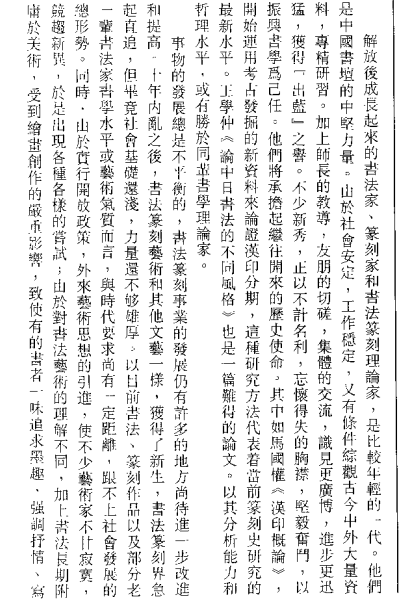 解放後成長起來的書法家、篆刻家和書法篆刻理論家，是比較年輕的一代。他們
是中國書壇的中堅力量。由於社會安定，工作穩定，又有條件綜觀古今中外大量資
料，專精研習。加上師長的教導，友朋的切磋，集體的交流，識見更廣博，進步更迅
猛，獲得『出藍』之譽。不少新秀，正以不計名利，忘懷得失的胸襟，堅毅奮鬥，以
振興書學爲己任。他們將承擔起繼往開來的歷史使命。其中如馬國權《漢印概論》，
開始運用考古發掘的新資料來論證漢印分期，這種研究方法代表着當前篆刻史研究的
最新水平。王學仲《論中日書法的不同風格》也是一篇難得的論文。以其分析能力和
哲理水平，或有勝於同輩書學理論家。
事物的發展總是不平衡的，書法篆刻事業的發展仍有許多的地方尚待進一步改進
和提高。十年內亂之後，書法篆刻藝術和其他文藝一樣，獲得了新生，書法篆刻界急
起直追，但畢竟社會基礎還淺，力量還不够雄厚。以目前書法、篆刻作品以及部分老
一輩書法家書學水平或藝術氣質而言，與時代要求尚有一定距離，跟不上社會發展的
總形勢。同時，由於實行開放政策，外來藝術思想的引進，使不少藝術家不甘寂寞，
競趨新異，於是出現各種各樣的嘗試；由於對書法藝術的理解不同，加上書法長期附
庸於美術，受到繪畫創作的嚴重影響，致使有的書者一味追求墨趣、強調抒情、寫